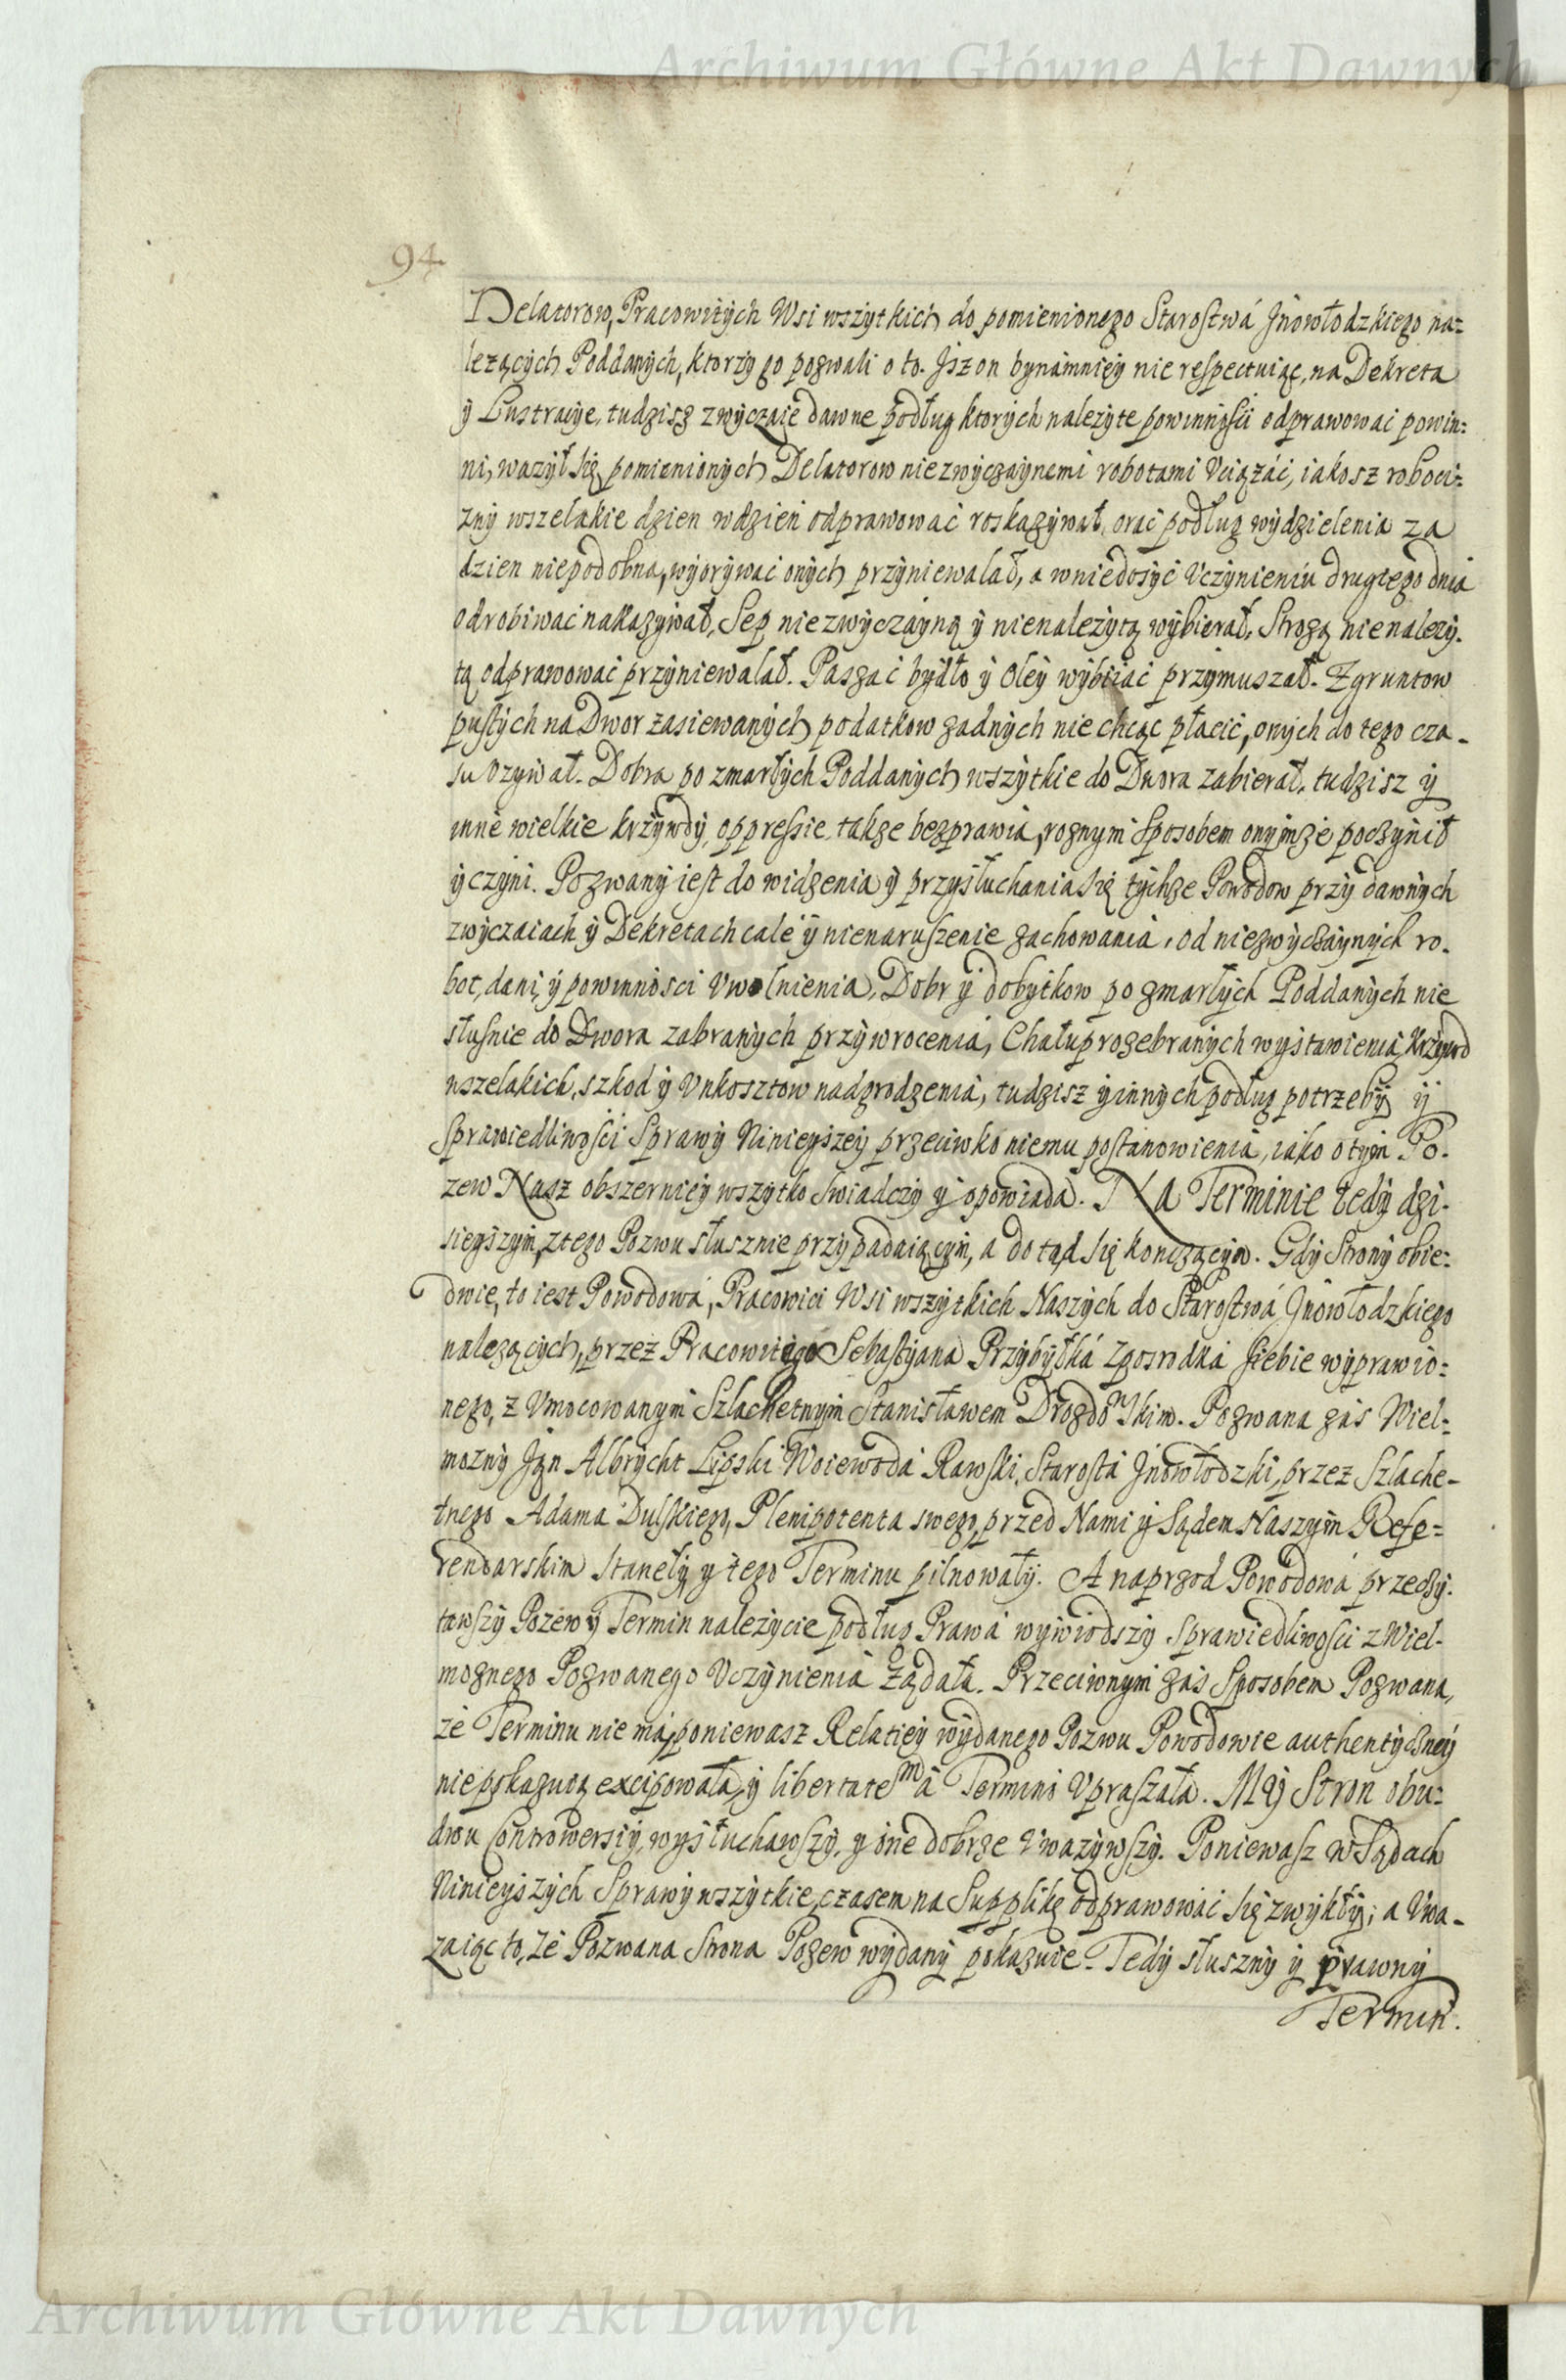 Archiwum Główne Akt Dawnych
94
Delatorow, Pracowitych Wsi wszytkich do pomienionego Starostwá Jnowłodzkiego na=
lezących Poddanych, ktorzy go pozwali o to. Jsz on bynamniey nie respectuiąc, na Dekreta
y Lustracye, tudzisz zwyczaie dawne podług ktorych nalezyte powinności odprawowac powin=
ni, wazył się pomienionych Delatorow niezwyczaynemi robotami Vciązáć, iakosz roboci=
zny wszelakie dzien wdzień odprawować roskazywał, orać podług wydzielenia za
dzien niepodobna, wyorywać onych przyniewalał, a wniedosyć Vczynieniu drugiego dnia
odrobiwać nakazywał, Sep niezwyczayną y nienalezytą wybierał, Strozą nienalezy.
tą odprawować przyniewalał. Paszać bydło y Oley wybiiać przymuszał. Zgruntow
pustych na Dwor zasiewanych podatkow zadnych nie chcąc płacić, onych do tego cza-
su Vzywał. Dobra po zmarłych Poddanych wszytkie do Dwora zabierał, tudzisz y
inne wielkie krzywdy, oppressie, takze bezprawia, roznymi Sposobem onymze poczynił
y czyni. Pozwany iest do widzenia y przysłuchania się tychze Powodow przy dawnych
zwyczaiach y Dekretach cale y nienaruszenie zachowania, od niezwyczaynych ro.
bot, dani, y powinnosci Vwolnienia, Dobr y dobytkow po zmarłych Poddanych nie
słusnie do Dwora zabranych przywrocenia, Chałup rozebranych wystawienia, Krzywd
wszelakich, szkod y Vnkosztow nadgrodzenia, tudzisz y innych podług potrzeby y
Sprawiedliwości Sprawy Ninieyszey przeciwko niemu postanowienia, iako o tym Po.
zew Nasz obszerniey wszytko Swiadczy y opowiada. Na Terminie tedy dzi.
sieyszym, ztego Pozwu słusznie przypadaiącym, a do tąd się konczącym. Gdy Strony obie=
dwie, to iest Powodowá, Pracowici Wsi wszytkich Naszych do Starostwá Jnowłodzkiego
nalezących, przez Pracowitego Sebastyana Przybyłká zposrodká siebie wyprawio=
nego, z Vmocowanym Szlachetnym Stanisławem Drozdonskim. Pozwana zas Wiel=
mozny Jan Albrycht Lipski Woiewoda Rawski, Starosta Jnowłodzki, przez Szlache-
tnego Adama Dulskiego, Plenipotenta swego, przed Nami y Sądem Naszym Refe=
rendarskim Stanęły y tego Terminu pilnowały. A naprzod Powodowa przeczy.
tawszy Pozew y Termin nalezycie podług Prawa wywiodszy Sprawiedliwości z Wiel-
moznego Pozwanego Vczynienia Ządała. Przeciwnym zas Sposobem Pozwana,
ze Terminu nie má, poniewasz Relatiey wydanego Pozwu Powodowie authentyczney
nie pokazuią, excipowała, y libertatem á Termino Vpraszała. My Stron obu=
dwu Controwersiy, wysłuchawszy, y one dobrze Vwazywszy. Poniewasz w Sądach
Ninieyszych Sprawy wszytkie, czasem na Supplikę odprawować się zwykły; a Vwa-
zaiąc to, ze Pozwana Strona Pozew wydany pokazuie. Tedy słuszny y prawny
Termin.
Archiwum Główne Akt Dawnych